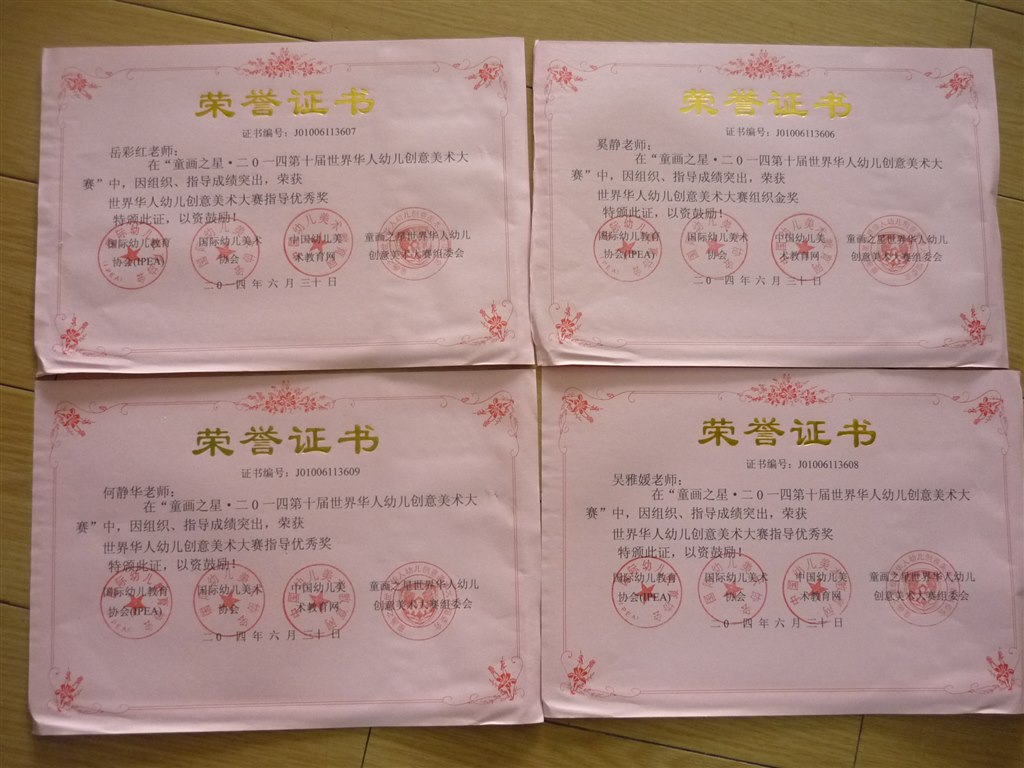 荣誉证书
证书编号：J01006113607
岳彩红老师：
在“童画之星·二0一四第十届世界华人幼儿创意美术大
赛”中，因组织、指导成绩突出，荣获
世界华人幼儿创意美术大赛指导优秀奖
特颁此证，以资鼓励！
国际幼儿教育 国际幼儿美术 中国幼儿美 童画之星世界华人幼儿
协会(IPEA) 协会 术教育网 创意美术大赛组委会
二0一四年六月三十日
荣誉证书
证书编号：J01006113606
奚静老师：
在“童画之星·二0一四第十届世界华人幼儿创意美术大
赛”中，因组织、指导成绩突出，荣获
世界华人幼儿创意美术大赛组织金奖
特颁此证，以资鼓励！
国际幼儿教育 国际幼儿美术 中国幼儿美 童画之星世界华人幼儿
协会(IPEA) 协会 术教育网 创意美术大赛组委会
二0一四年六月三十日
荣誉证书
证书编号：J01006113609
何静华老师：
在“童画之星·二0一四第十届世界华人幼儿创意美术大
赛”中，因组织、指导成绩突出，荣获
世界华人幼儿创意美术大赛指导优秀奖
特颁此证，以资鼓励！
国际幼儿教育 国际幼儿美术 中国幼儿美 童画之星世界华人幼儿
协会(IPEA) 协会 术教育网 创意美术大赛组委会
二0一四年六月三十日
荣誉证书
证书编号：J01006113608
吴雅媛老师：
在“童画之星·二0一四第十届世界华人幼儿创意美术大
赛”中，因组织、指导成绩突出，荣获
世界华人幼儿创意美术大赛指导优秀奖
特颁此证，以资鼓励！
国际幼儿教育 国际幼儿美术 中国幼儿美 童画之星世界华人幼儿
协会(IPEA) 协会 术教育网 创意美术大赛组委会
二0一四年六月三十日